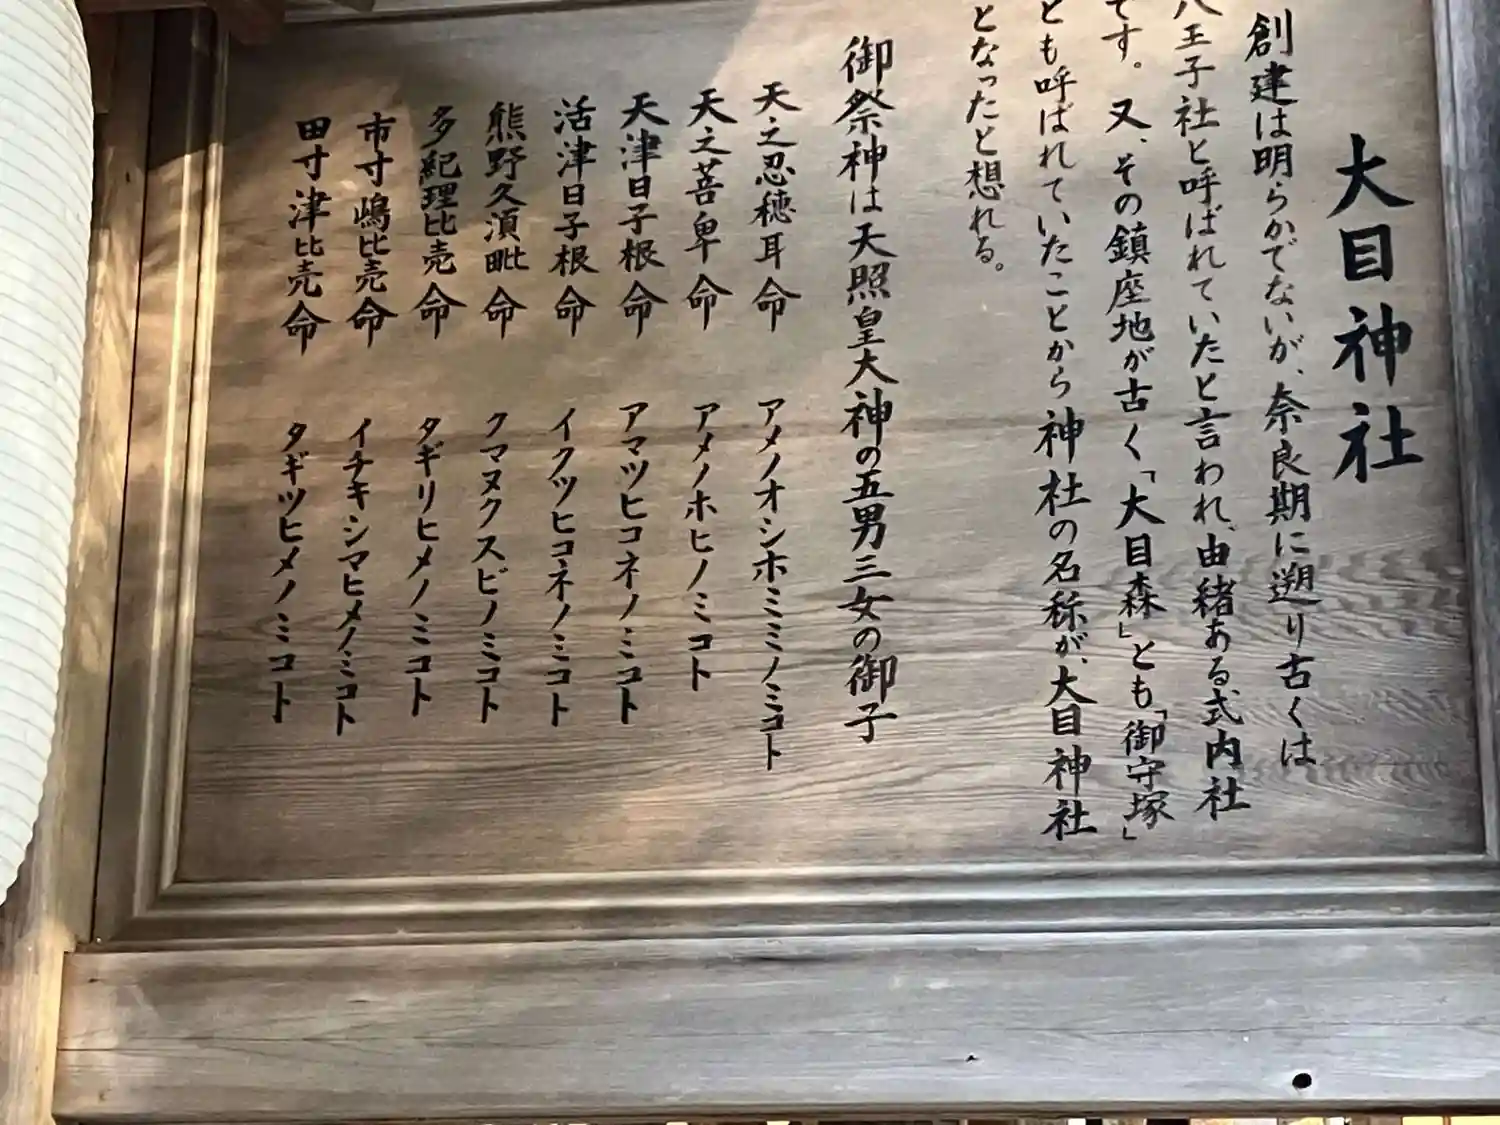 大目神社
創建は明らかでないが、奈良期に遡り古くは
八王子社と呼ばれていたと言われ、由緒ある式内社
です。又、その鎮座地が古く「大目森」とも「御守塚」
とも呼ばれていたことから神社の名称が、大目神社
となったと想れる。
御祭神は天照皇大神の五男三女の御子
天之忍穂耳命 アメノオシホミミノミコト
天之菩卑命 アメノホヒノミコト
天津日子根命 アマツヒコネノミコト
活津日子根命 イクツヒコネノミコト
熊野久湏毗命 クマヌクスビノミコト
多紀理比売命 タギリヒメノミコト
市寸嶋比売命 イチキシマヒメノミコト
田寸津比売命 タギツヒメノミコト